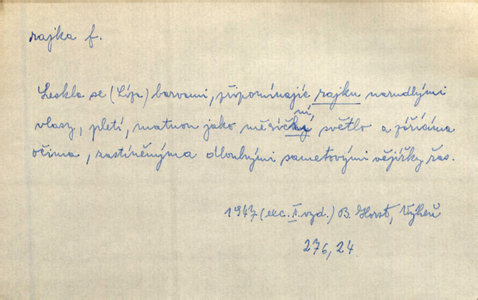 rajka f.
Leskla se (Líza) barvami, připomínajíc rajku narudlými
vlasy, pletí, matnou jako měsíční světlo a zářícíma
očima, zastíněnýma dlouhými sametovými vějířky řas.
1947 (exc. II. vyd.) B. Horst, Výheň
276, 24